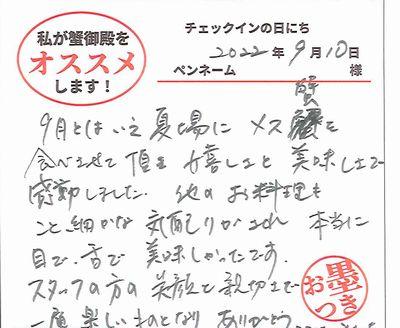 私が蟹御殿を
オススメ
します！
チェックインの日にち
2022年9月10日
ペンネーム 様
9月とはいえ夏場にメス蟹を
食べさせて頂き嬉しさと美味しさで
感動しました. 他のお料理も
こと細かな気配りがされ 本当に
目で、舌で 美味しかったです.
スタッフの方の笑顔と親切さで
一層楽しいものとなり ありがとう
お墨つき